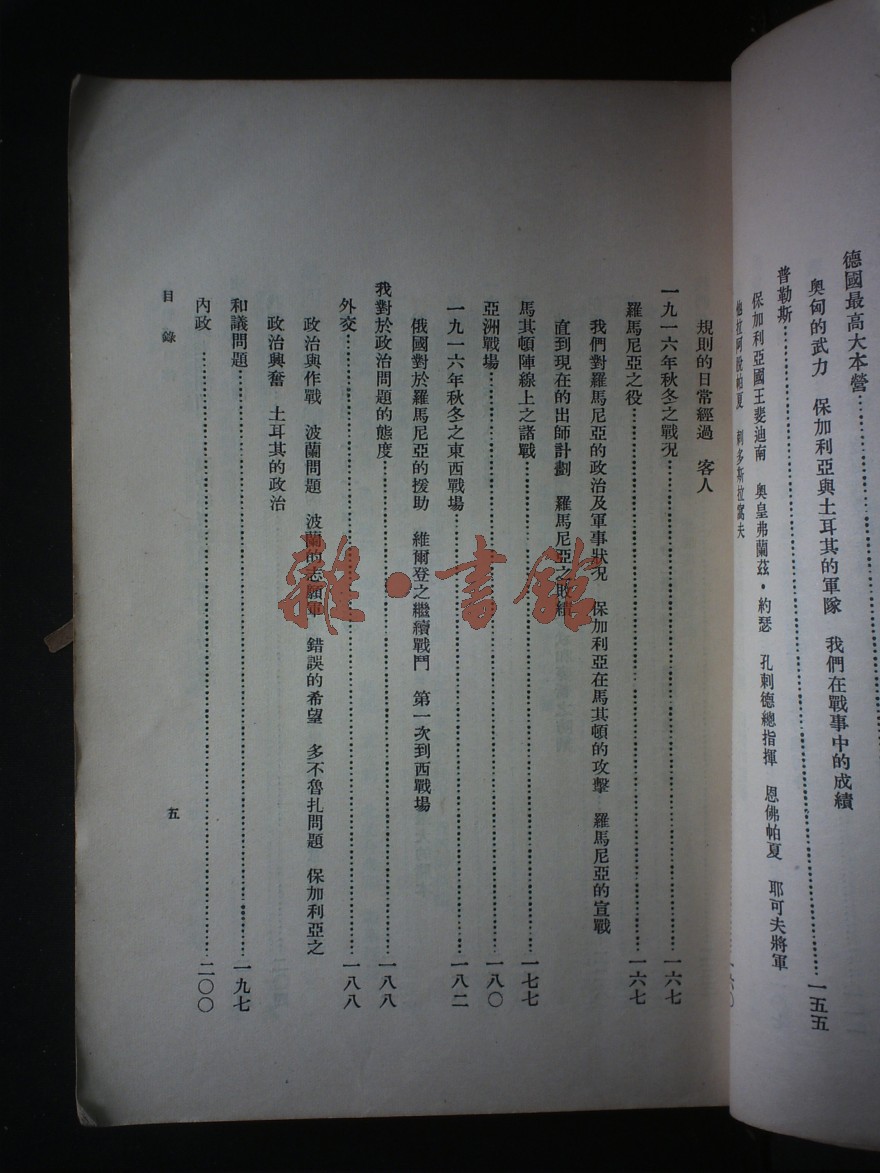 德國最高大本營……一五五
奧匈的武力　保加利亞與土耳其的軍隊　我們在戰事中的成績
普勒斯……一六〇
保加利亞國王斐迪南　奧皇弗蘭茲・約瑟　孔剌德總指揮　恩佛帕夏　耶可夫將軍
規則的日常經過　客人
一九一六年秋冬之戰況……一六七
羅馬尼亞之役……一六七
我們對羅馬尼亞的政治及軍事狀况　保加利亞在馬其頓的攻擊　羅馬尼亞的宣戰
直到現在的出師計劃　羅馬尼亞之敗績
馬其頓陣線上之諸戰……一七七
亞洲戰場……一八〇
一九一六年秋冬之東西戰場……一八二
俄國對於羅馬尼亞的援助　維爾登之繼續戰鬥　第一次到西戰場
我對於政治問題的態度……一八八
外交……一八八
政治與作戰　波蘭問題　波蘭的志願軍　錯誤的希望　多不魯扎問題　保加利亞之
政治興奮　土耳其的政治
和議問題……一九七
內政……二〇〇
目錄
五
雜・書館